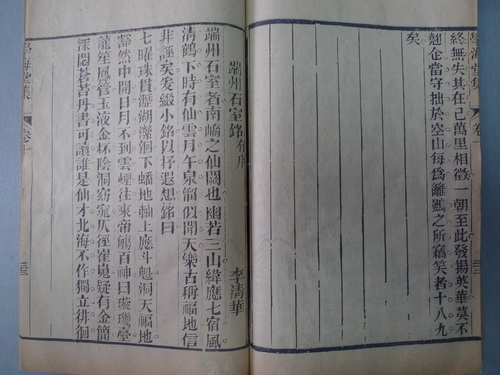 學海堂集
終無失其在己萬里相徵一朝至此發揚英華莫不
翹企當守拙於空山每為離鷃之所竊笑者十八九
矣
端州石室銘有序
李清華
端州石室者南嶠之仙闥也幽若三山緯應七宿風
清鶴下時有仙雲月午泉溜似聞天樂古稱福地信
非誣矣爰綴小銘以抒遐想銘曰
七曜珠貫瀝湖瀠洄下蟠地軸上應斗魁洞天福地
豁然中開日月不到雲煙往來帝觴百神曰璇璣臺
龍笙鳳管玉液金杯陰洞窈窕仄徑崔嵬疑有金簡
深閟蒼苔丹書可讀誰是仙才北海不作獨立徘徊
學海堂集 卷十